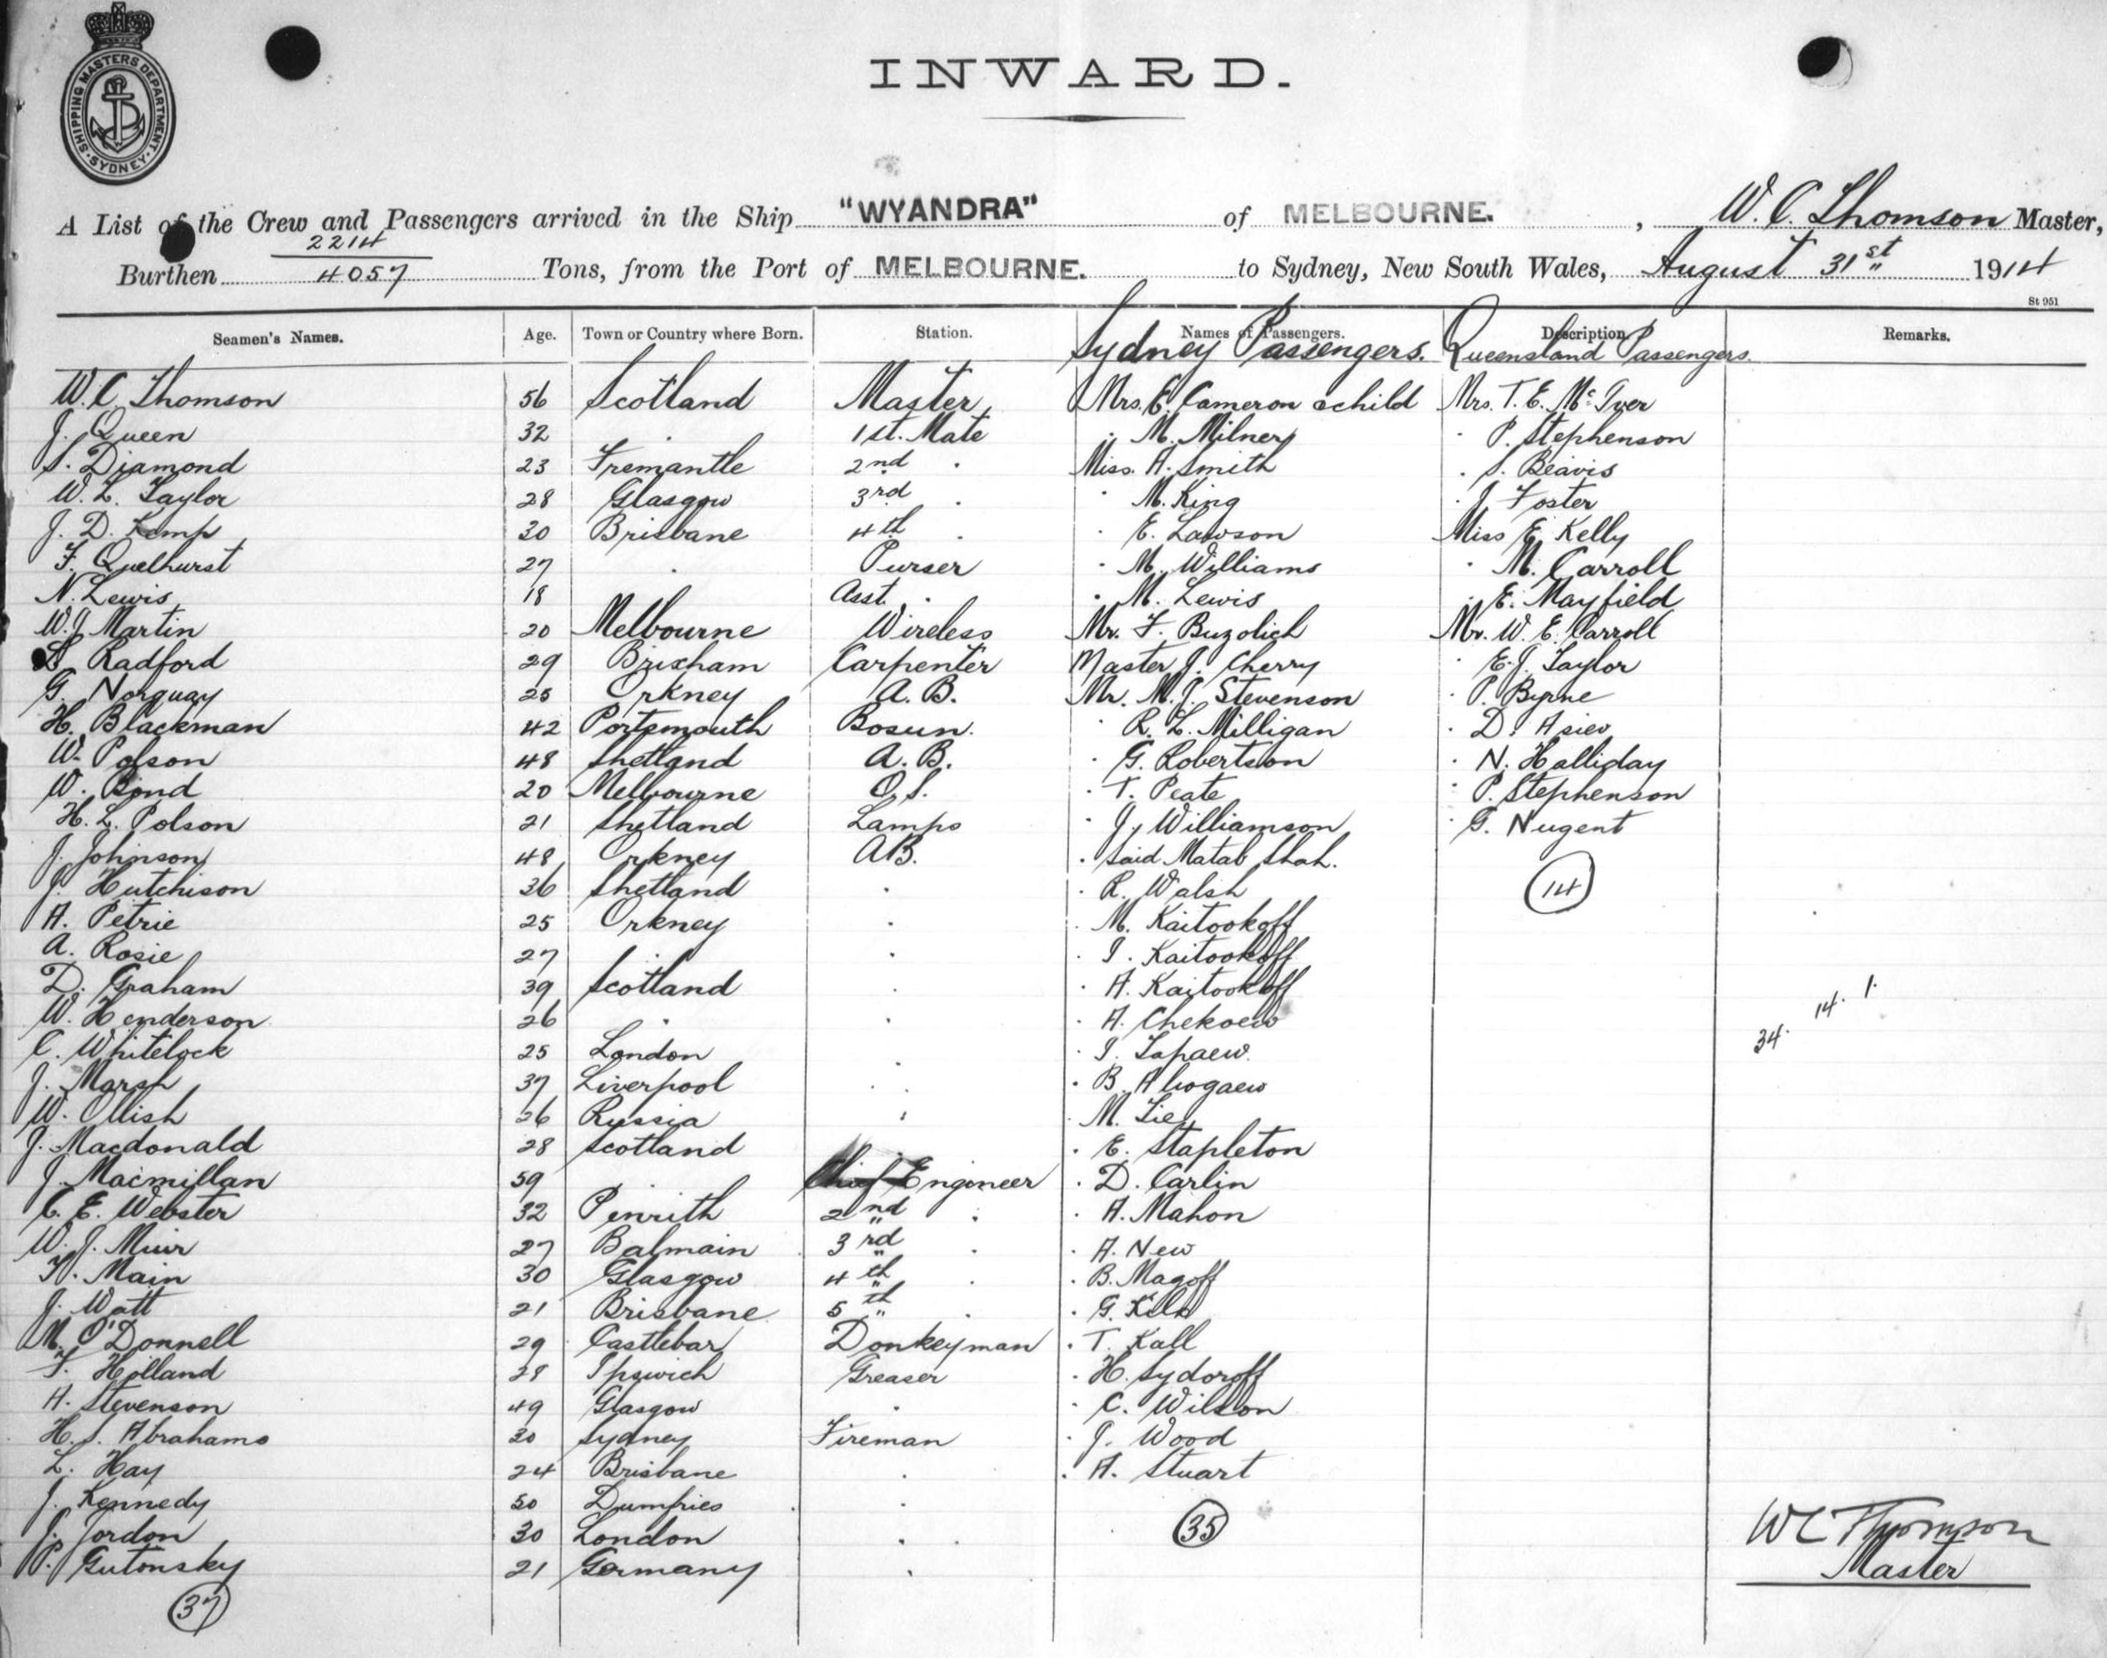 SHIPPING MASTERS DEPARTMENT
SYDNEY
INWARD.
A List of the Crew and Passengers arrived in the Ship "WYANDRA" of MELBOURNE. , W. C. Thomson Master,
Burthen 2214 4057 Tons, from the Port of MELBOURNE. to Sydney, New South Wales, August 31st 1914
St 951
Seamen's Names. Age. Town or Country where Born. Station. Names of Passengers. Description Remarks.
Sydney Passengers. Queensland Passengers.
W. C. Thomson 56 Scotland Master Mrs. E. Cameron & child Mrs. T. E. McIver
J. Queen 32 . 1st. Mate . M. Milner . P. Stephenson
S. Diamond 23 Fremantle 2nd . Miss. A. Smith . S. Beavis
W. L. Taylor 28 Glasgow 3rd . . M. King . J Foster
J. D. Kemp 30 Brisbane 4th . . E. Lawson Miss E. Kelly
F. Quelhurst 27 . Purser . M. Williams . M. Carroll
N. Lewis 18 Asst. . . M. Lewis . E. Mayfield
W. J Martin 20 Melbourne Wireless Mr. F. Buzolich Mr. W. E. Carroll
Radford 29 Brixham Carpenter Master J. Cherry . E. J. Taylor
G. Norquay 25 Orkney A. B. Mr. M. J. Stevenson . P. Byrne
H. Blackman 42 Portsmouth Bosun. . R. L. Milligan . D.
W. Polson 48 Shetland A. B. . G. Robertson . N. Halliday
W. Bond 20 Melbourne O. S. . T. Peate . P. Stephenson
H. L. Polson 21 Shetland Lamps . J. Williamson . G. Nugent
J. Johnson 48 Orkney AB. . Said Matab Shah.
J. Hutchison 36 Shetland . . R. Walsh 14
A. Petrie 25 Orkney . . M. Kaitookoff
A. Rosie 27 . . . I. Kaitookoff
D. Graham 39 Scotland . . A. Kaitookoff
W. Henderson 26 . . . A. Chekoew 34. 14. 1.
C. Whitelock 25 London . . I. Tapaew.
J. Marsh 37 Liverpool . . B.
W. Ollish 26 Russia . . M.
J. Macdonald 28 Scotland . E. Stapleton
J. Macmillan 59 . Chief Engineer . D. Carlin
C. E. Webster 32 Penrith 2nd . . A. Mahon
W. J. Muir 27 Balmain 3rd . . A. New
Main 30 Glasgow 4th . . B. Magoff
J. Watt 21 Brisbane 5th . . G.
M. O'Donnell 29 Castlebar Donkeyman . T. Kall
F. Holland 28 Ipswich Greaser . H. Sydoroff
A. Stevenson 49 Glasgow . . C. Wilson
H. S. Abrahams 30 Sydney Fireman . J. Wood
L. Hay 24 Brisbane . . A. Stuart
J. Kennedy 50 Dumfries .
J. Jordon 30 London . 35 W C Thomson
P. Gutonsky 21 Germany . Master
37